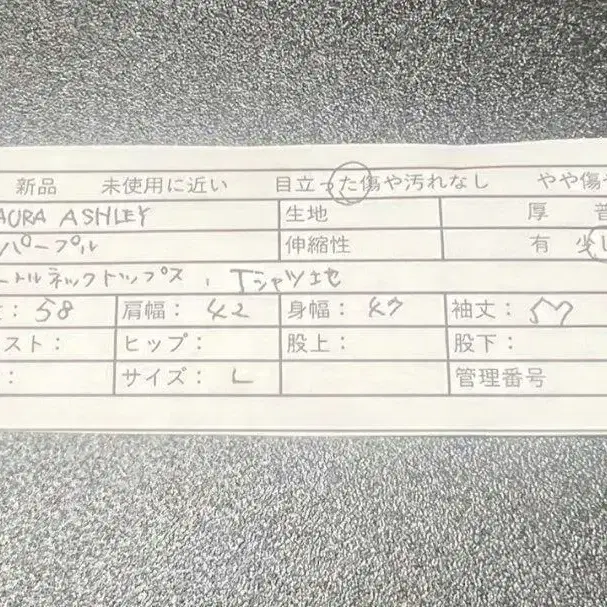 新品 未使用に近い 目立った傷や汚れなし やや傷
AURA ASHLEY 生地 厚 普
パープル 伸縮性 有 少し
ートルネックトップス、Tシャツ生地
: 58 肩幅: 42 身幅: 47 袖丈: 57
スト: ヒップ: 股上: 股下:
: サイズ: L 管理番号